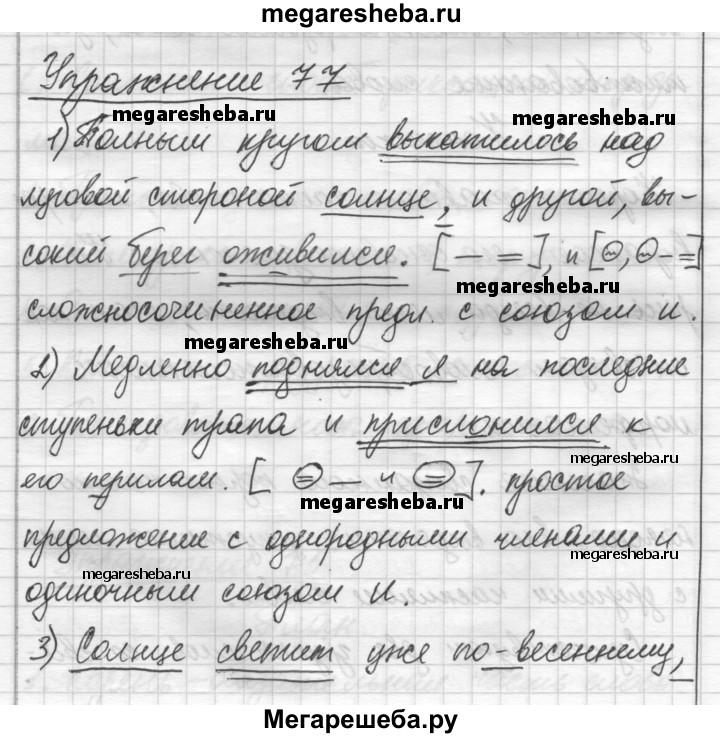 megaresheba.ru
Упражнение 77
megaresheba.ru
megaresheba.ru
1) Полным кругом выкатилось над
луговой стороной солнце, и другой, вы-
сокий берег оживился. [— =], и [О, О — =]
megaresheba.ru
сложносочиненное предл. с союзом и.
megaresheba.ru
2) Медленно поднялся я на последние
ступеньки трапа и прислонился к
megaresheba.ru
его перилам. [ = — и = ]. простое
megaresheba.ru
предложение с однородными членами и
megaresheba.ru
megaresheba.ru
одиночным союзом И.
3) Солнце светит уже по-весеннему,
Мегарешеба.ру